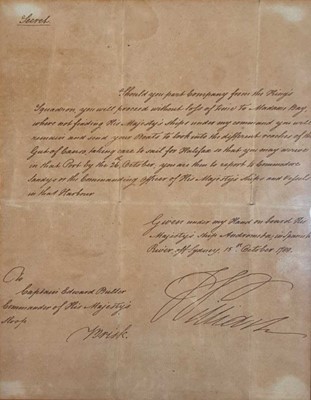 Secret.
Should you part Company from the King's
Squadron, you will proceed without loss of time to Madame Bay,
where not finding His Majesty's ships under my command you will
remain and send your Boats to look into the different reaches of the
Gut of Canso, taking care to sail for Halifax so that you may arrive
in that Port by the 26th October, you are then to report to Commodore
Sandys or the Commanding officer of His Majesty's ships and Vessels
in that Harbour
Given under my Hand on board His
Majesty's Ship Andromeda, in Spanish
River, off Sydney, 15th October
To
Captain Edward Buller
Commander of His Majesty's
Sloop
Brisk.
William